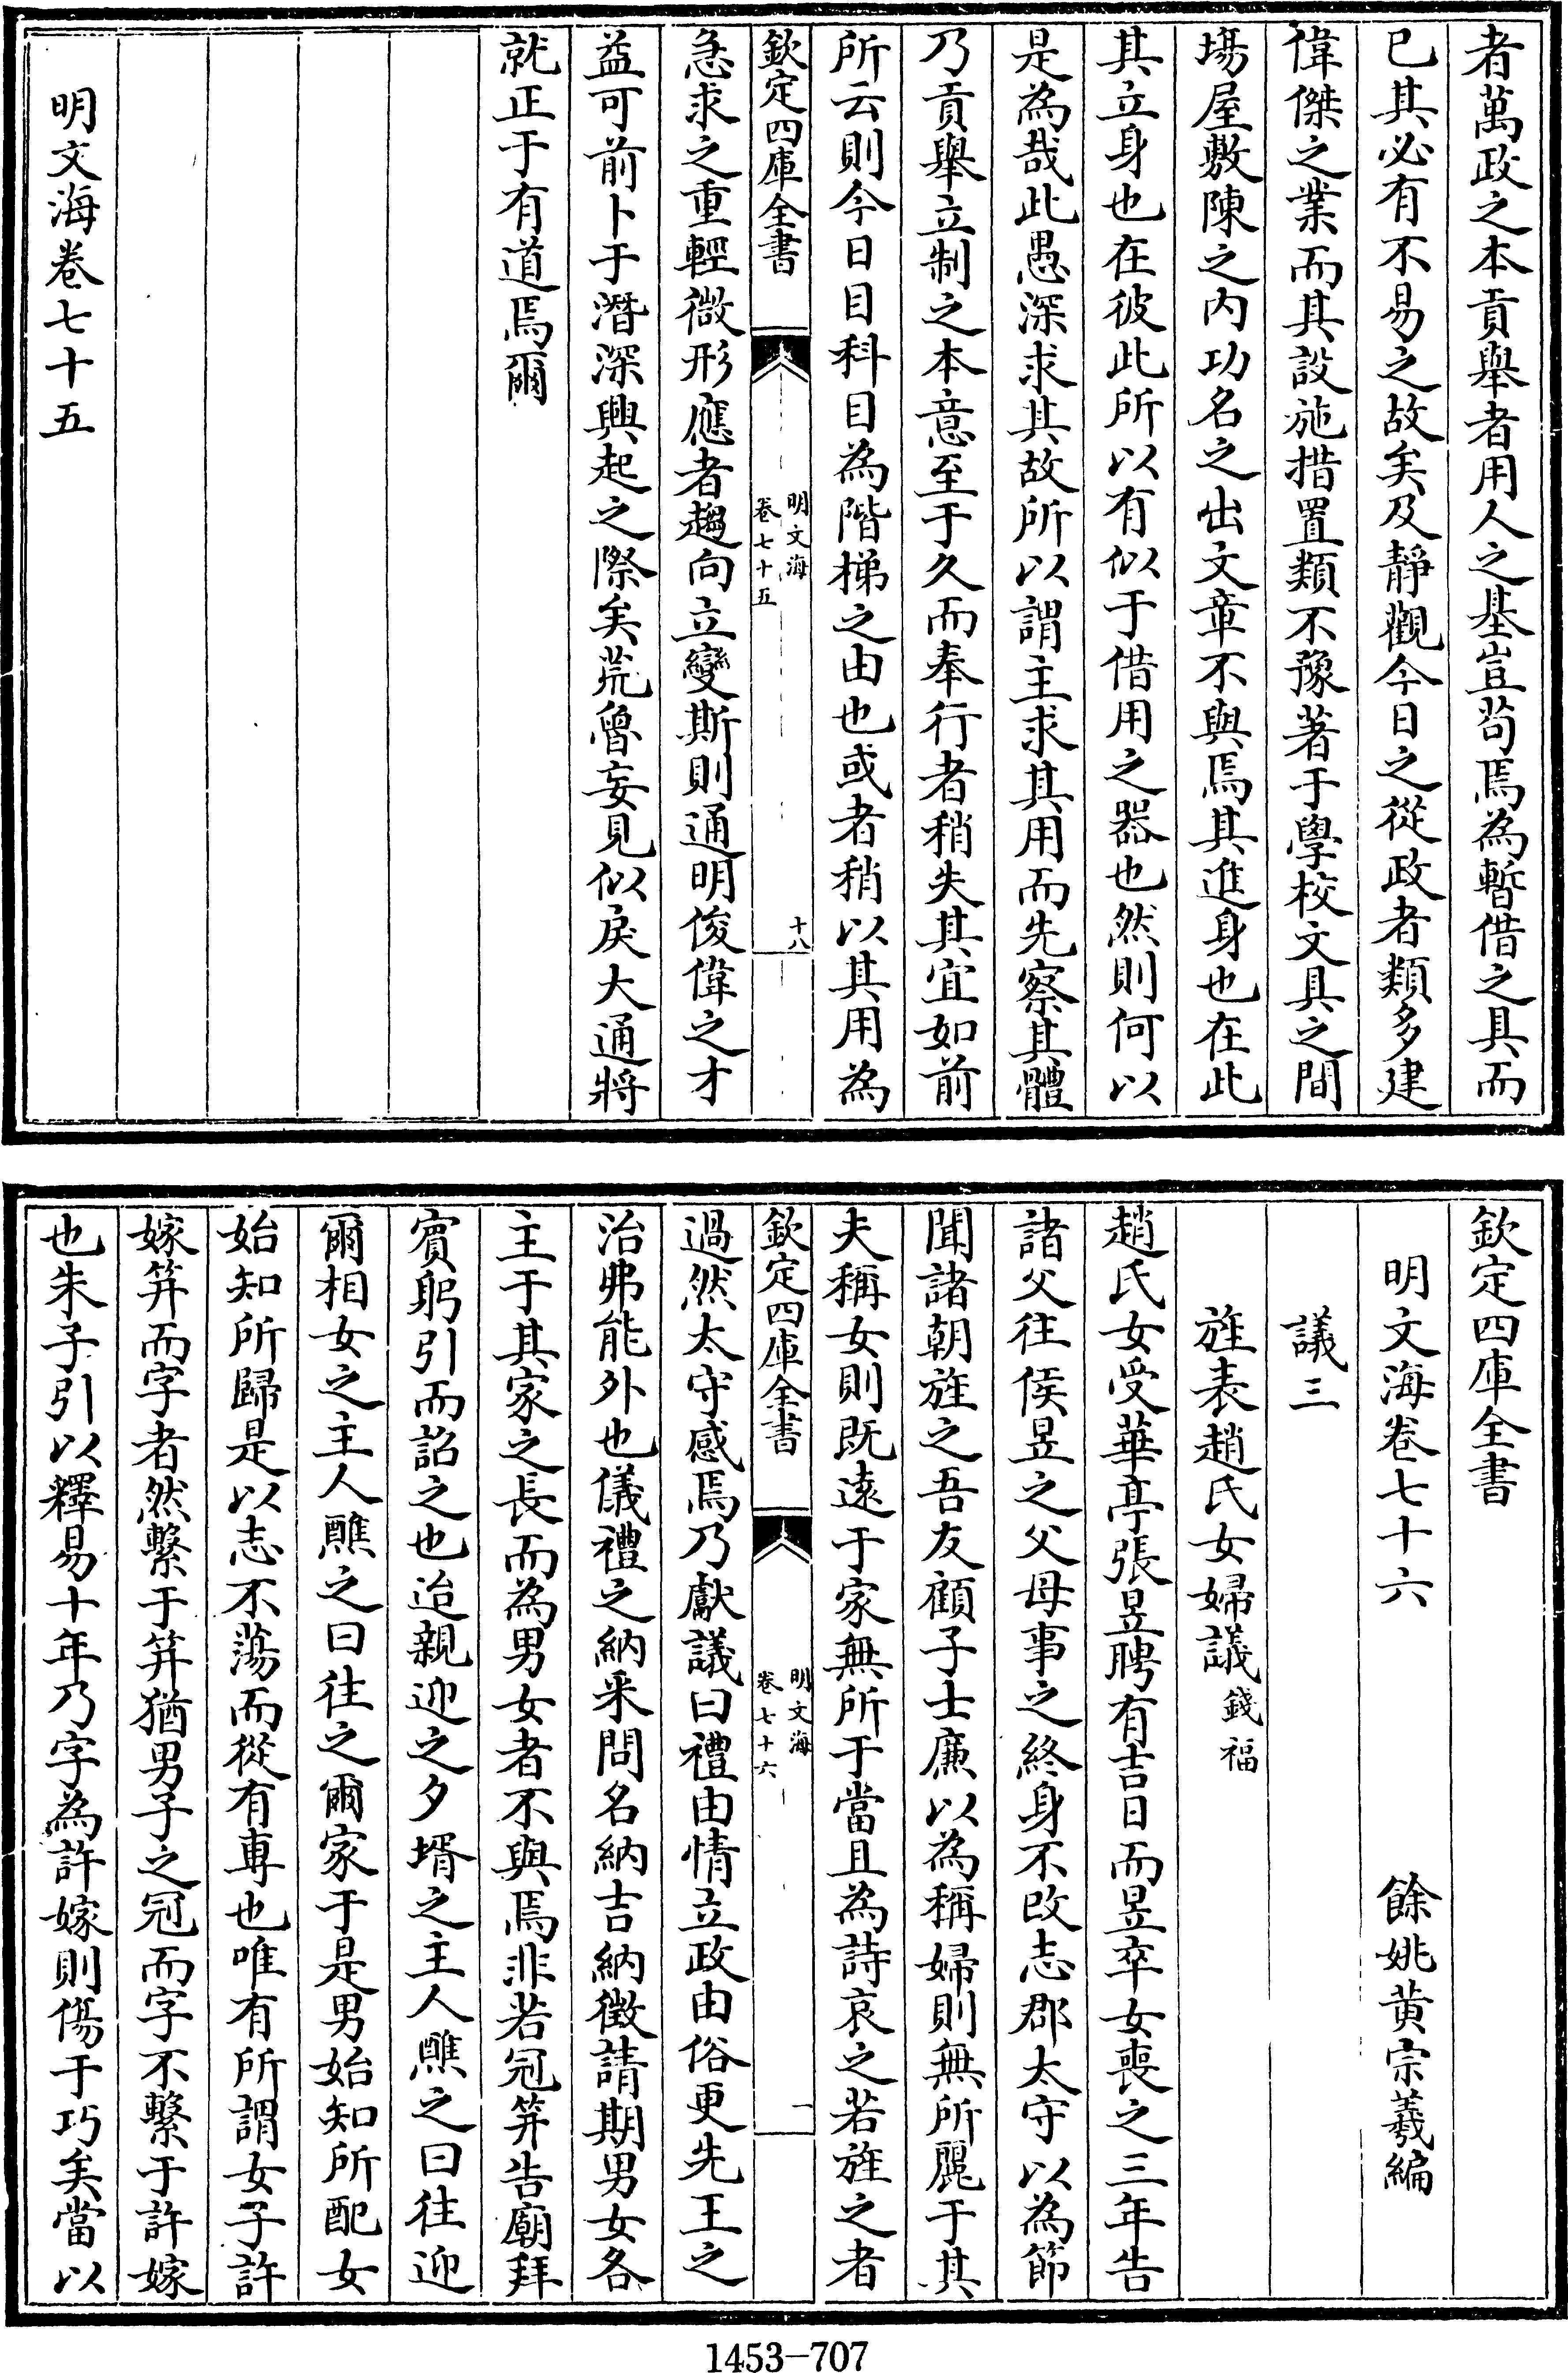 者萬政之本貢舉者用人之基豈茍焉為暫借之具而
已其必有不易之故矣及靜觀今日之從政者類多建
偉傑之業而其設施措置類不豫著于學校文具之間
場屋敷陳之内功名之出文章不與焉其進身也在此
其立身也在彼此所以有似于借用之器也然則何以
是為哉此愚深求其故所以謂主求其用而先察其體
乃貢舉立制之本意至于久而奉行者稍失其宜如前
所云則今日目科目為階梯之由也或者稍以其用為
欽定四庫全書
明文海
卷七十五
十八
急求之重輕微形應者趨向立變斯則通明俊偉之才
益可前卜于潛深興起之際矣荒魯妄見似戾大通將
就正于有道焉爾
明文海卷七十五
欽定四庫全書
明文海卷七十六 餘姚黃宗羲編
議三
旌表趙氏女婦議 錢福
趙氏女受華亭張昱聘有吉日而昱卒女喪之三年告
諸父往侯昱之父母事之終身不改志郡太守以為節
聞諸朝旌之吾友顧子士廉以為稱婦則無所麗于其
夫稱女則既遠于家無所于當且為詩哀之若旌之者
欽定四庫全書
明文海
卷七十六
一
過然太守感焉乃獻議曰禮由情立政由俗更先王之
治弗能外也儀禮之納釆問名納吉納徵請期男女各
主于其家之長而為男女者不與焉非若冠笄告廟拜
賓躬引而詔之也迨親迎之夕壻之主人醮之曰往迎
爾相女之主人醮之曰往之爾家于是男始知所配女
始知所歸是以志不蕩而從有專也唯有所謂女子許
嫁笄而字者然繫于笄猶男子之冠而字不繫于許嫁
也朱子引以釋易十年乃字為許嫁則傷于巧矣當以
1453-707